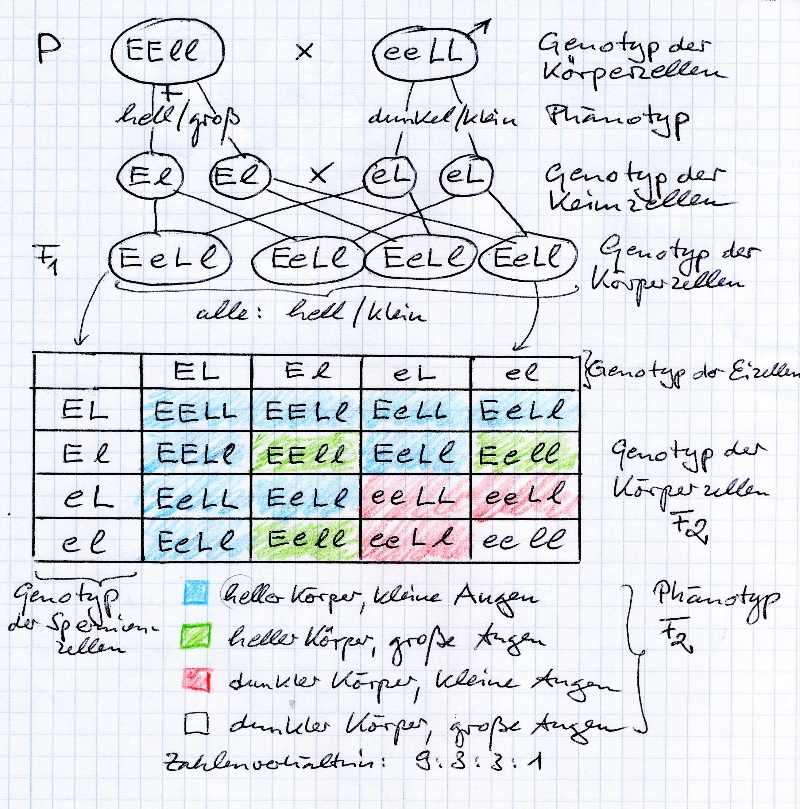 P EEll x eeLL Genotyp der
Körperzellen
hell/groß dunkel/klein Phänotyp
El El x eL eL Genotyp der
Keimzellen
F1 EeLl EeLl EeLl EeLl Genotyp der
Körperzellen
alle: hell/klein
EL El eL el Genotyp der Eizellen
EL EELL EELl EeLL EeLl
El EELl EEll EeLl Eell Genotyp der
Körperzellen
eL EeLL EeLl eeLL eeLl
F2
el EeLl Eell eeLl eell
Genotyp
der Spermien-
zellen
heller Körper, kleine Augen
heller Körper, große Augen
dunkler Körper, kleine Augen
dunkler Körper, große Augen
Phänotyp
F2
Zahlenverhältnis: 9:3:3:1